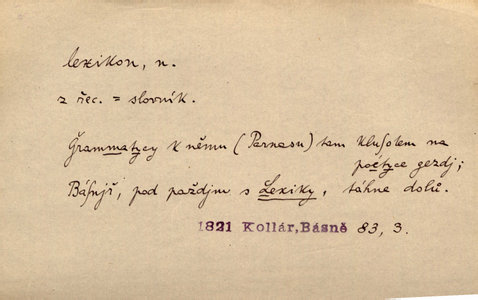 lexikon, n.
z řec. = slovník.
Grammatycy k němu (Parnasu) tam klusotem na
poétyce gezdj;
Básnjř, pod paždjm s Lexiky, táhne dolů.
1821 Kollár, Básně 83, 3.